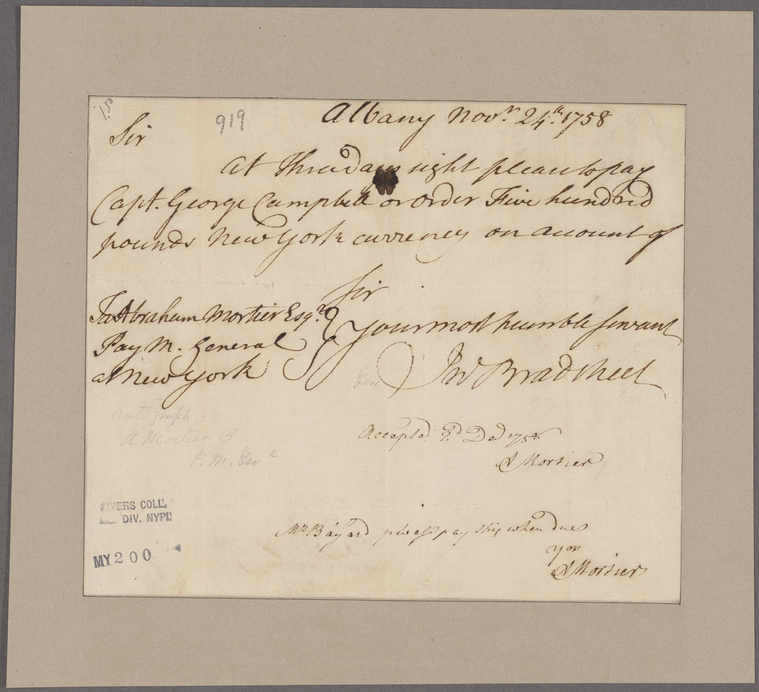 919
Albany Novr. 24th. 1758
Sir
At three days sight please to pay
Capt. George Campbell or order Five hundred
pounds New York currency on account of
Sir
To Abraham Mortier Esqr.
Pay M. General
at New York
Your most humble servant
Jno Bradstreet
Autograph
A Mortier
P. M. Genl
Accepted 3d Decr 1758
A Mortier
Mr. Bayard please pay this when due
yor
A Mortier
MYERS COLL.
DIV. NYPL
MY. 200